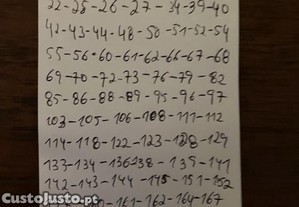 22-25-26-27-34-39-40
42-43-44-48-50-51-52-54
55-56-60-61-62-66-67-68
69-70-72-73-76-79-82
85-86-88-89-95-96-97
103-105-106-108-111-112
114-118-122-123-128-129
133-134-136-138-139-141
142-143-144-145-151-152
161-162-164-167
CustoJusto.pt